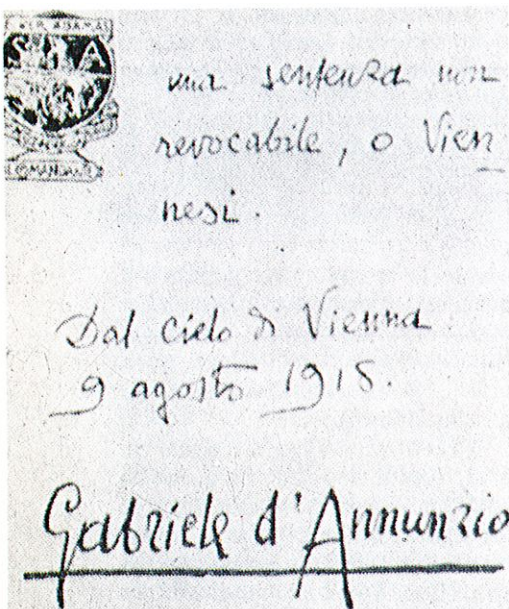 S A
una sentenza non
revocabile, o Vien
nesi.
Dal cielo di Vienna
9 agosto 1918.
Gabriele d'Annunzio